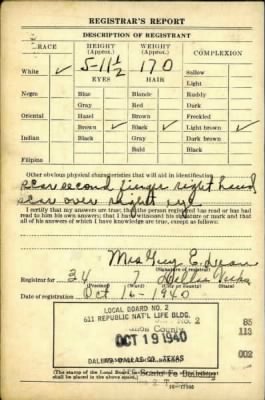 REGISTRAR'S REPORT
DESCRIPTION OF REGISTRANT
RACE HEIGHT (Approx.) WEIGHT (Approx.) COMPLEXION
White ✓ 5-11½ 170 Sallow
EYES HAIR Light
Negro Blue Blonde Ruddy
Gray Red Dark
Oriental Hazel Brown Freckled
Brown ✓ Black ✓ Light brown ✓
Indian Black Gray Dark brown
Bald Black
Filipino
Other obvious physical characteristics that will aid in identification
Scar second finger right hand,
scar over right eye
I certify that my answers are true; that the person registered has read or has had
read to him his own answers; that I have witnessed his signature or mark and that
all of his answers of which I have knowledge are true, except as follows:
Mrs Guy E.
(Signature of registrar)
Registrar for 34 7 Dallas Texas
(Precinct) (Ward) (City or county) (State)
Date of registration Oct 16-1940
LOCAL BOARD NO. 2
611 REPUBLIC NAT'L LIFE BLDG.
No. 2 85
County 113
OCT 19 1940
002
DALLAS TEXAS
(The stamp of the Local Board
shall be placed in the above space.)
Santa Fe Building